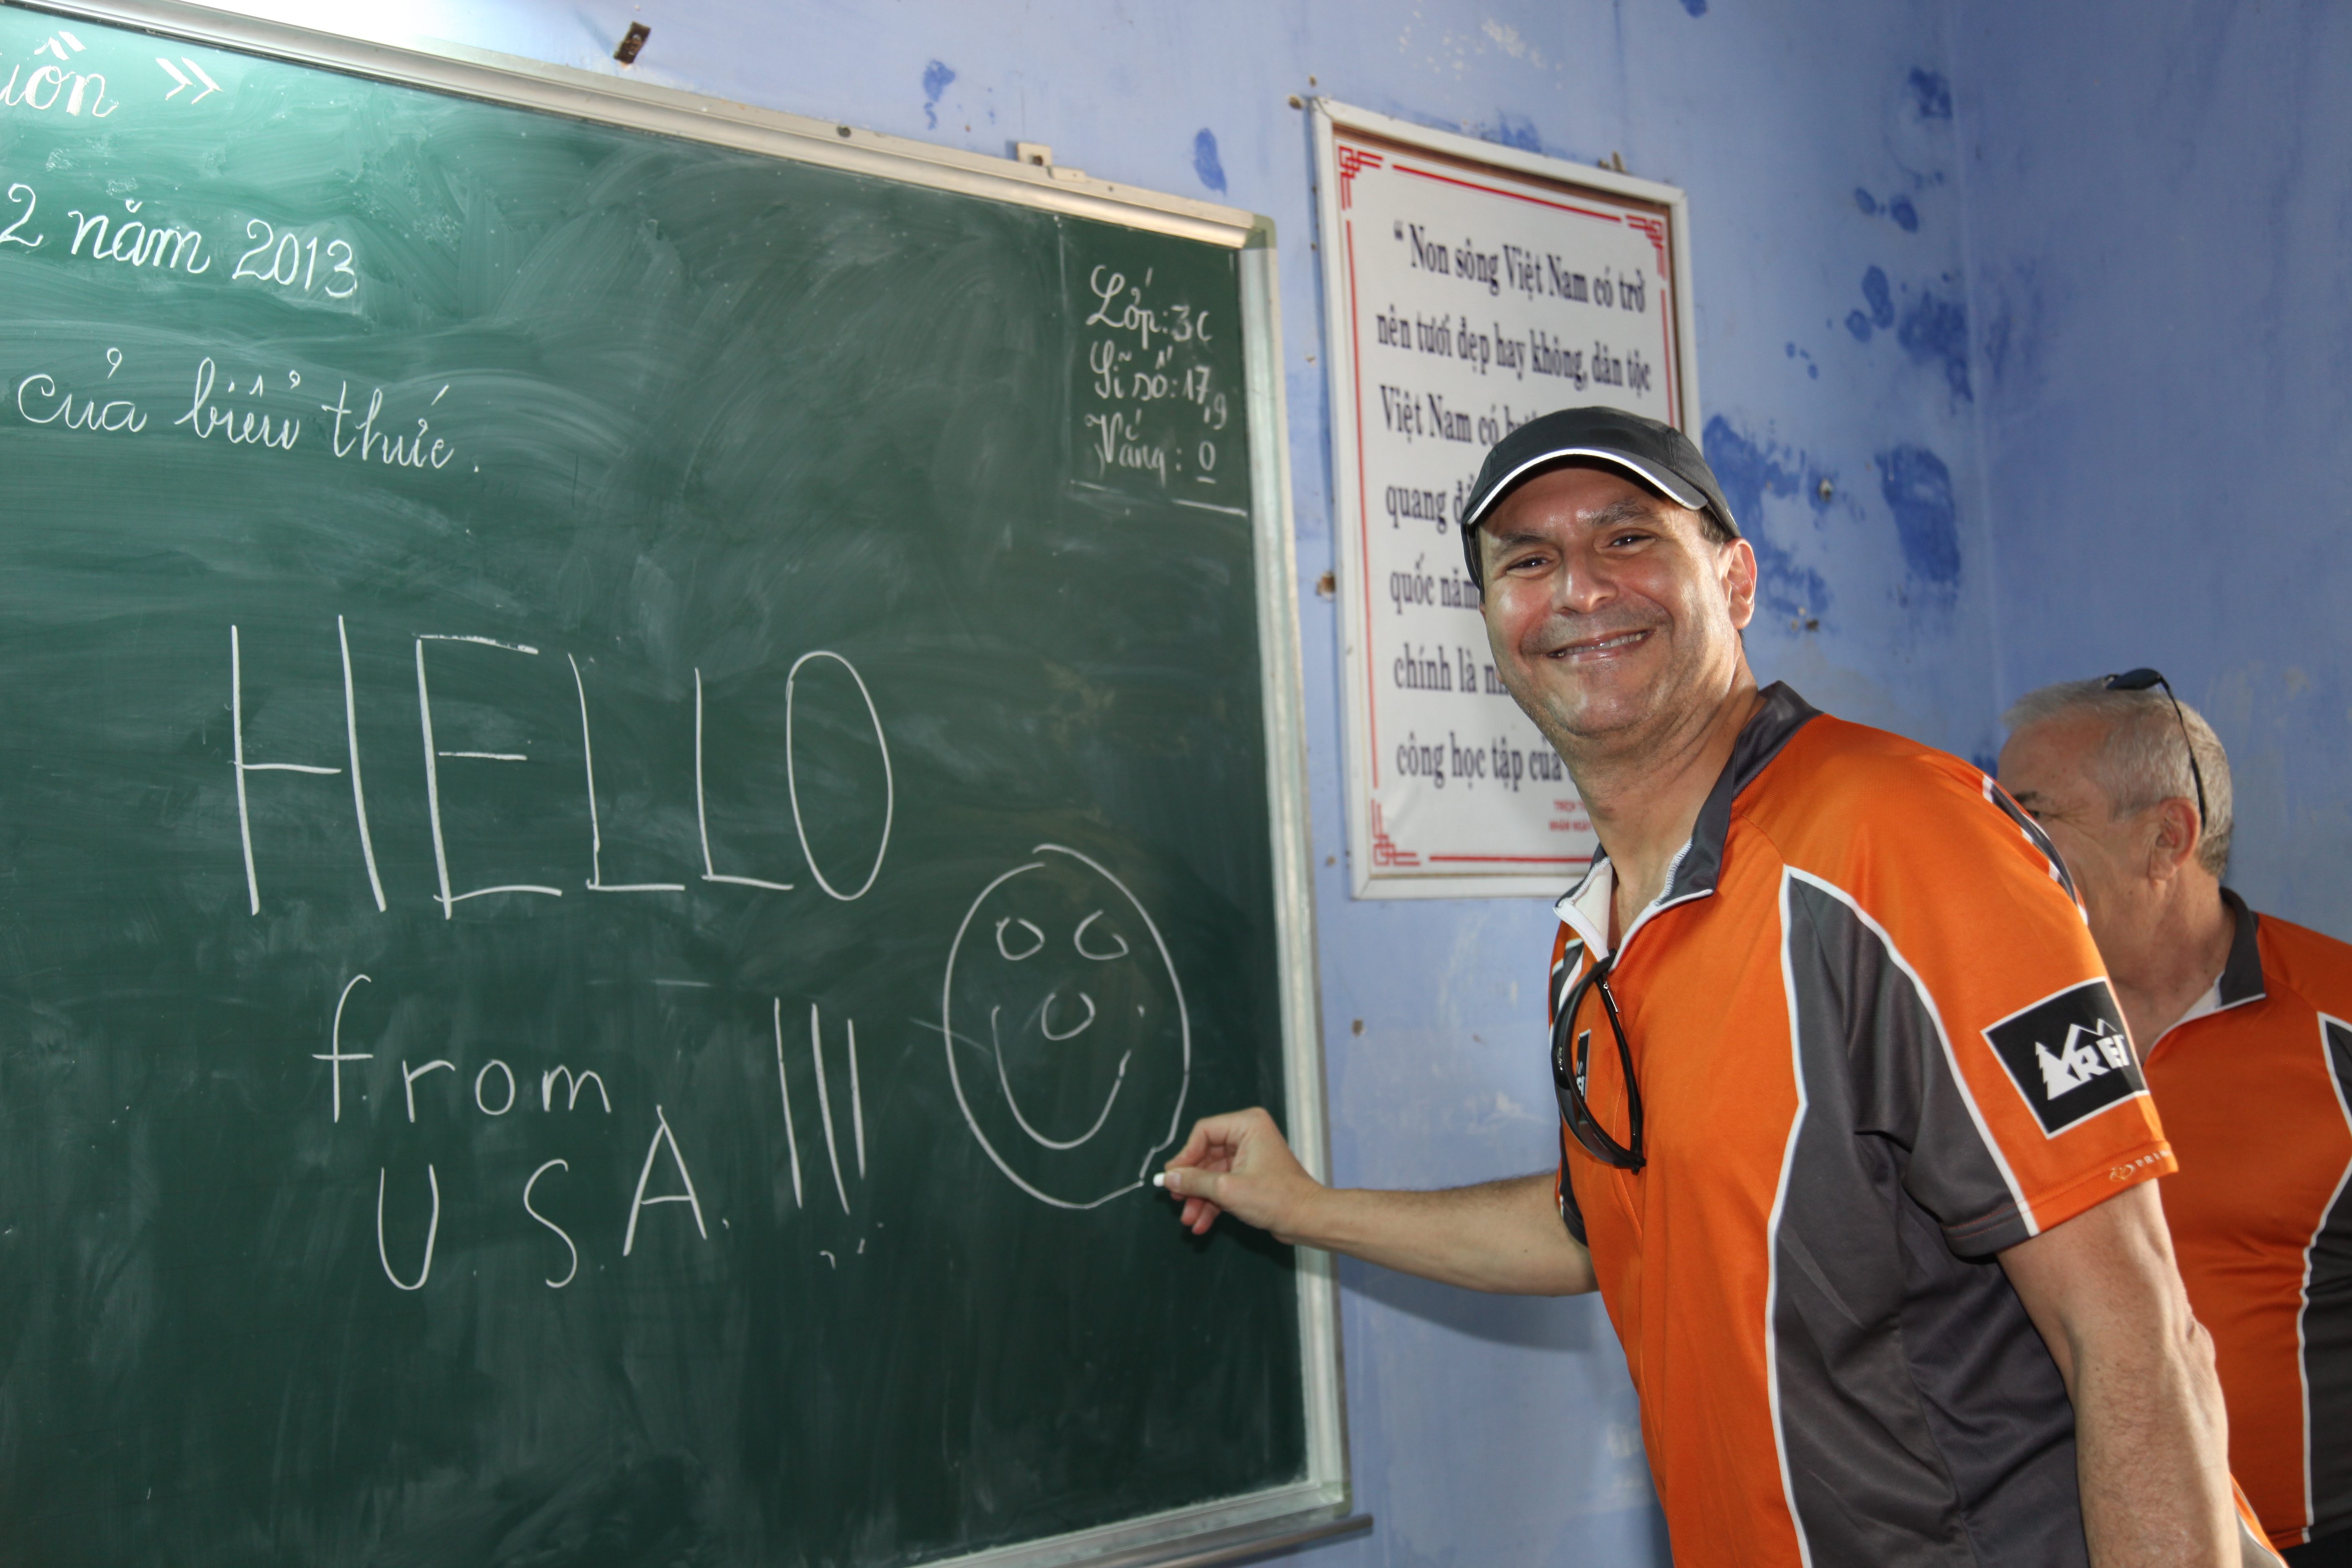 uồn »
2 năm 2013
của biểu thức.
Lớp: 3C
Sĩ số: 17
9
Vắng: 0
HELLO
from
U.S.A. !!!
“ Non sông Việt Nam có trở
nên tươi đẹp hay không, dân tộc
Việt Nam có
quang
quốc năm
chính là
công học tập của
REI